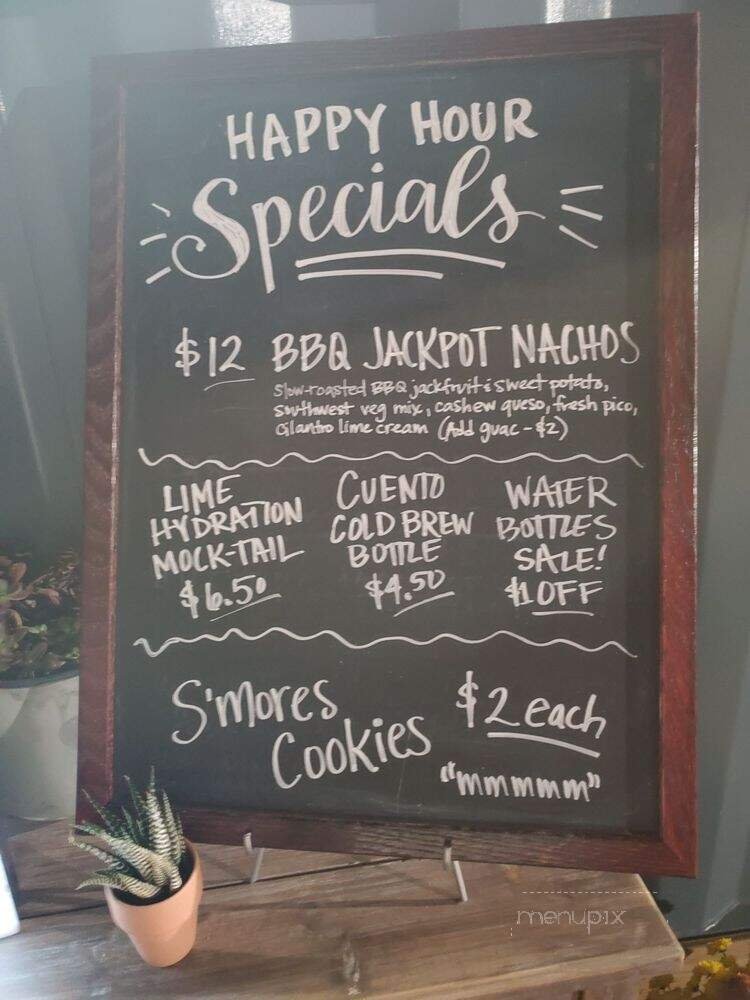 HAPPY HOUR
Specials
$12 BBQ JACKPOT NACHOS
Slow-roasted BBQ jackfruit & sweet potato,
Southwest veg mix, cashew queso, fresh pico,
cilantro lime cream (Add guac - $2)
LIME
HYDRATION
MOCK-TAIL
$6.50
CUENTO
COLD BREW
BOTTLE
$4.50
WATER
BOTTLES
SALE!
$1 OFF
S'mores
Cookies
$2 each
"mmmmm"
menupix